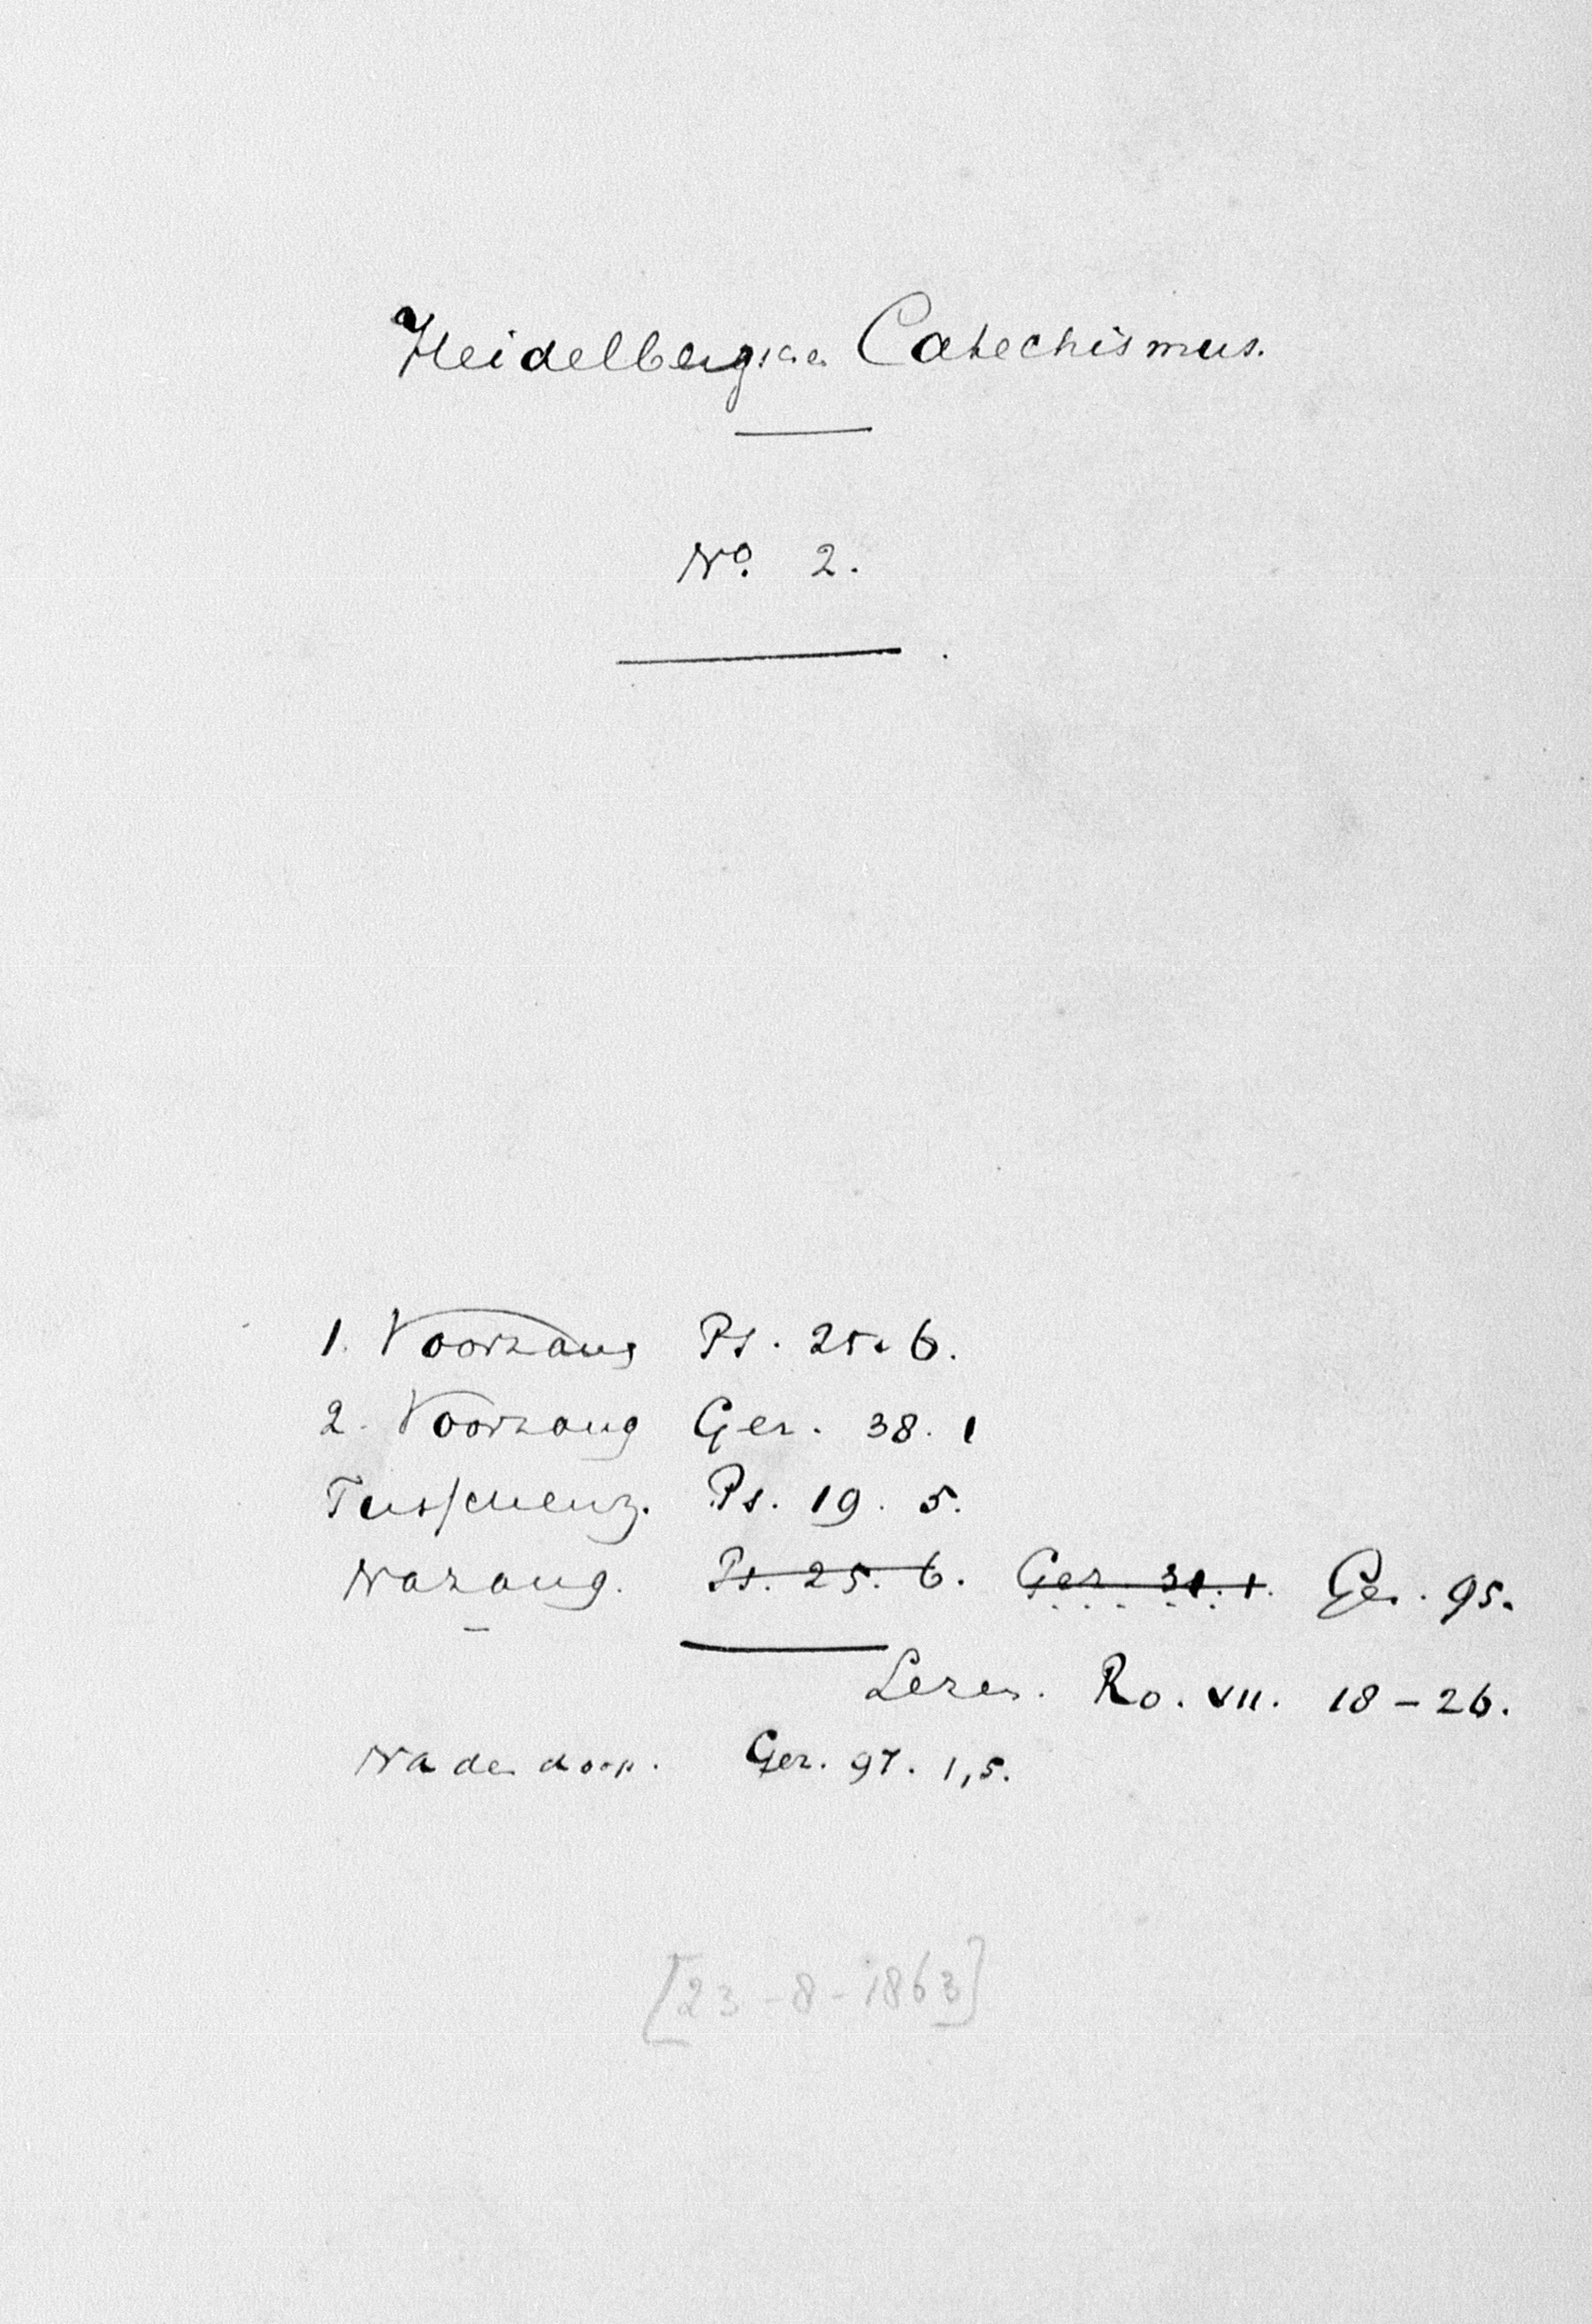 Heidelbergsche Catechismus.
No. 2.
1. Voorzang Ps. 25. 6.
2. Voorzang Gez. 38. 1
Tusschenz. Ps. 19. 5.
Nazang. Ps. 25. 6. Gez. 31. 1. Gez. 95.
Lezen. Ro. VII. 18 – 26.
Na den doop. Gez. 97. 1,5.
[23-8-1863]